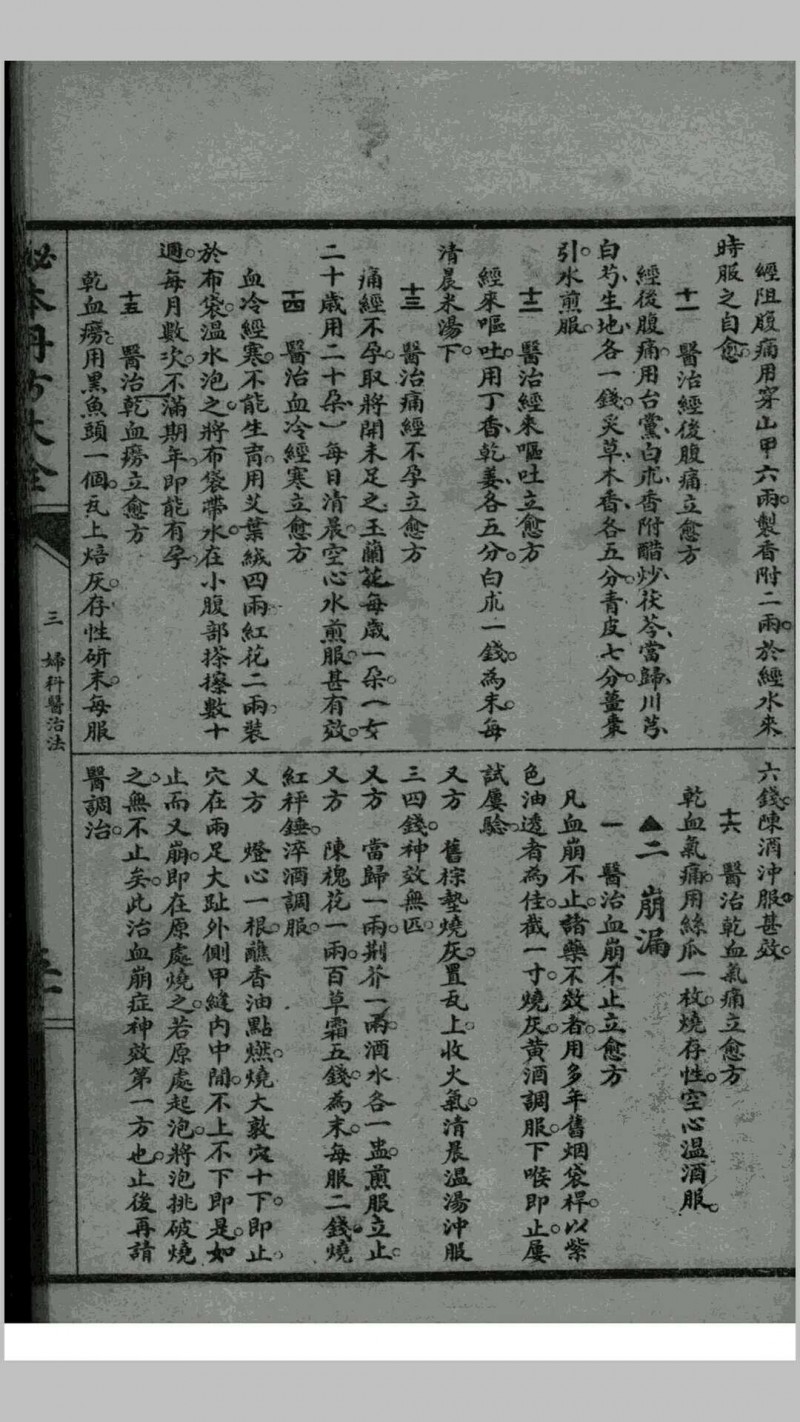 經阻腹痛用穿山甲六兩。製香附二兩。於經水來
時服之自愈。
十一　醫治經後腹痛立愈方
經後腹痛。用台黨、白朮、香附醋炒、茯苓、當歸、川芎、
白芍、生地、各一錢。炙草、木香、各五分。青皮七分。薑棗
引。水煎服。
十二　醫治經來嘔吐立愈方
經來嘔吐。用丁香、乾姜、各五分。白朮一錢。為末。每
清晨米湯下。
十三　醫治痛經不孕立愈方
痛經不孕。取將開未足之玉蘭花。每歲一朵。（一女
二十歲用二十朵、）每日清晨。空心水煎服。甚有效。
十四　醫治血冷經寒立愈方
血冷經寒。不能生育。用艾葉絨四兩。紅花二兩。裝
於布袋。温水泡之。將布袋帶水。在小腹部搽擦數十
週。每月數次。不滿期年。即能有孕。
十五　醫治乾血癆立愈方
乾血癆。用黑魚頭一個。瓦上焙灰。存性研末。每服
六錢。陳酒沖服。甚效。
十六　醫治乾血氣痛立愈方
乾血氣痛。用絲瓜一枚。燒存性。空心温酒服。
▲二　崩漏
一　醫治血崩不止立愈方
凡血崩不止。諸藥不效者。用多年舊烟袋桿。以紫
色油透者為佳。截一寸。燒灰。黃酒調服。下喉即止。屢
試屢驗。
又方　舊棕墊燒灰。置瓦上。收火氣。清晨温湯沖服
三四錢。神效無匹。
又方　當歸一兩。荆芥一兩。酒水各一盅。煎服立止。
又方　陳槐花一兩。百草霜五錢。為末。每服二錢。燒
紅秤錘。淬酒調服。
又方　燈心一根。蘸香油點燃。燒大敦穴十下。即止。
穴在兩足大趾外側甲縫內中間。不上不下即是。如
止而又崩。即在原處燒之。若原處起泡。將泡挑破燒
之。無不止矣。此治血崩症神效第一方也。止後再請
醫調治。
秘本丹方大全
三　婦科醫治法